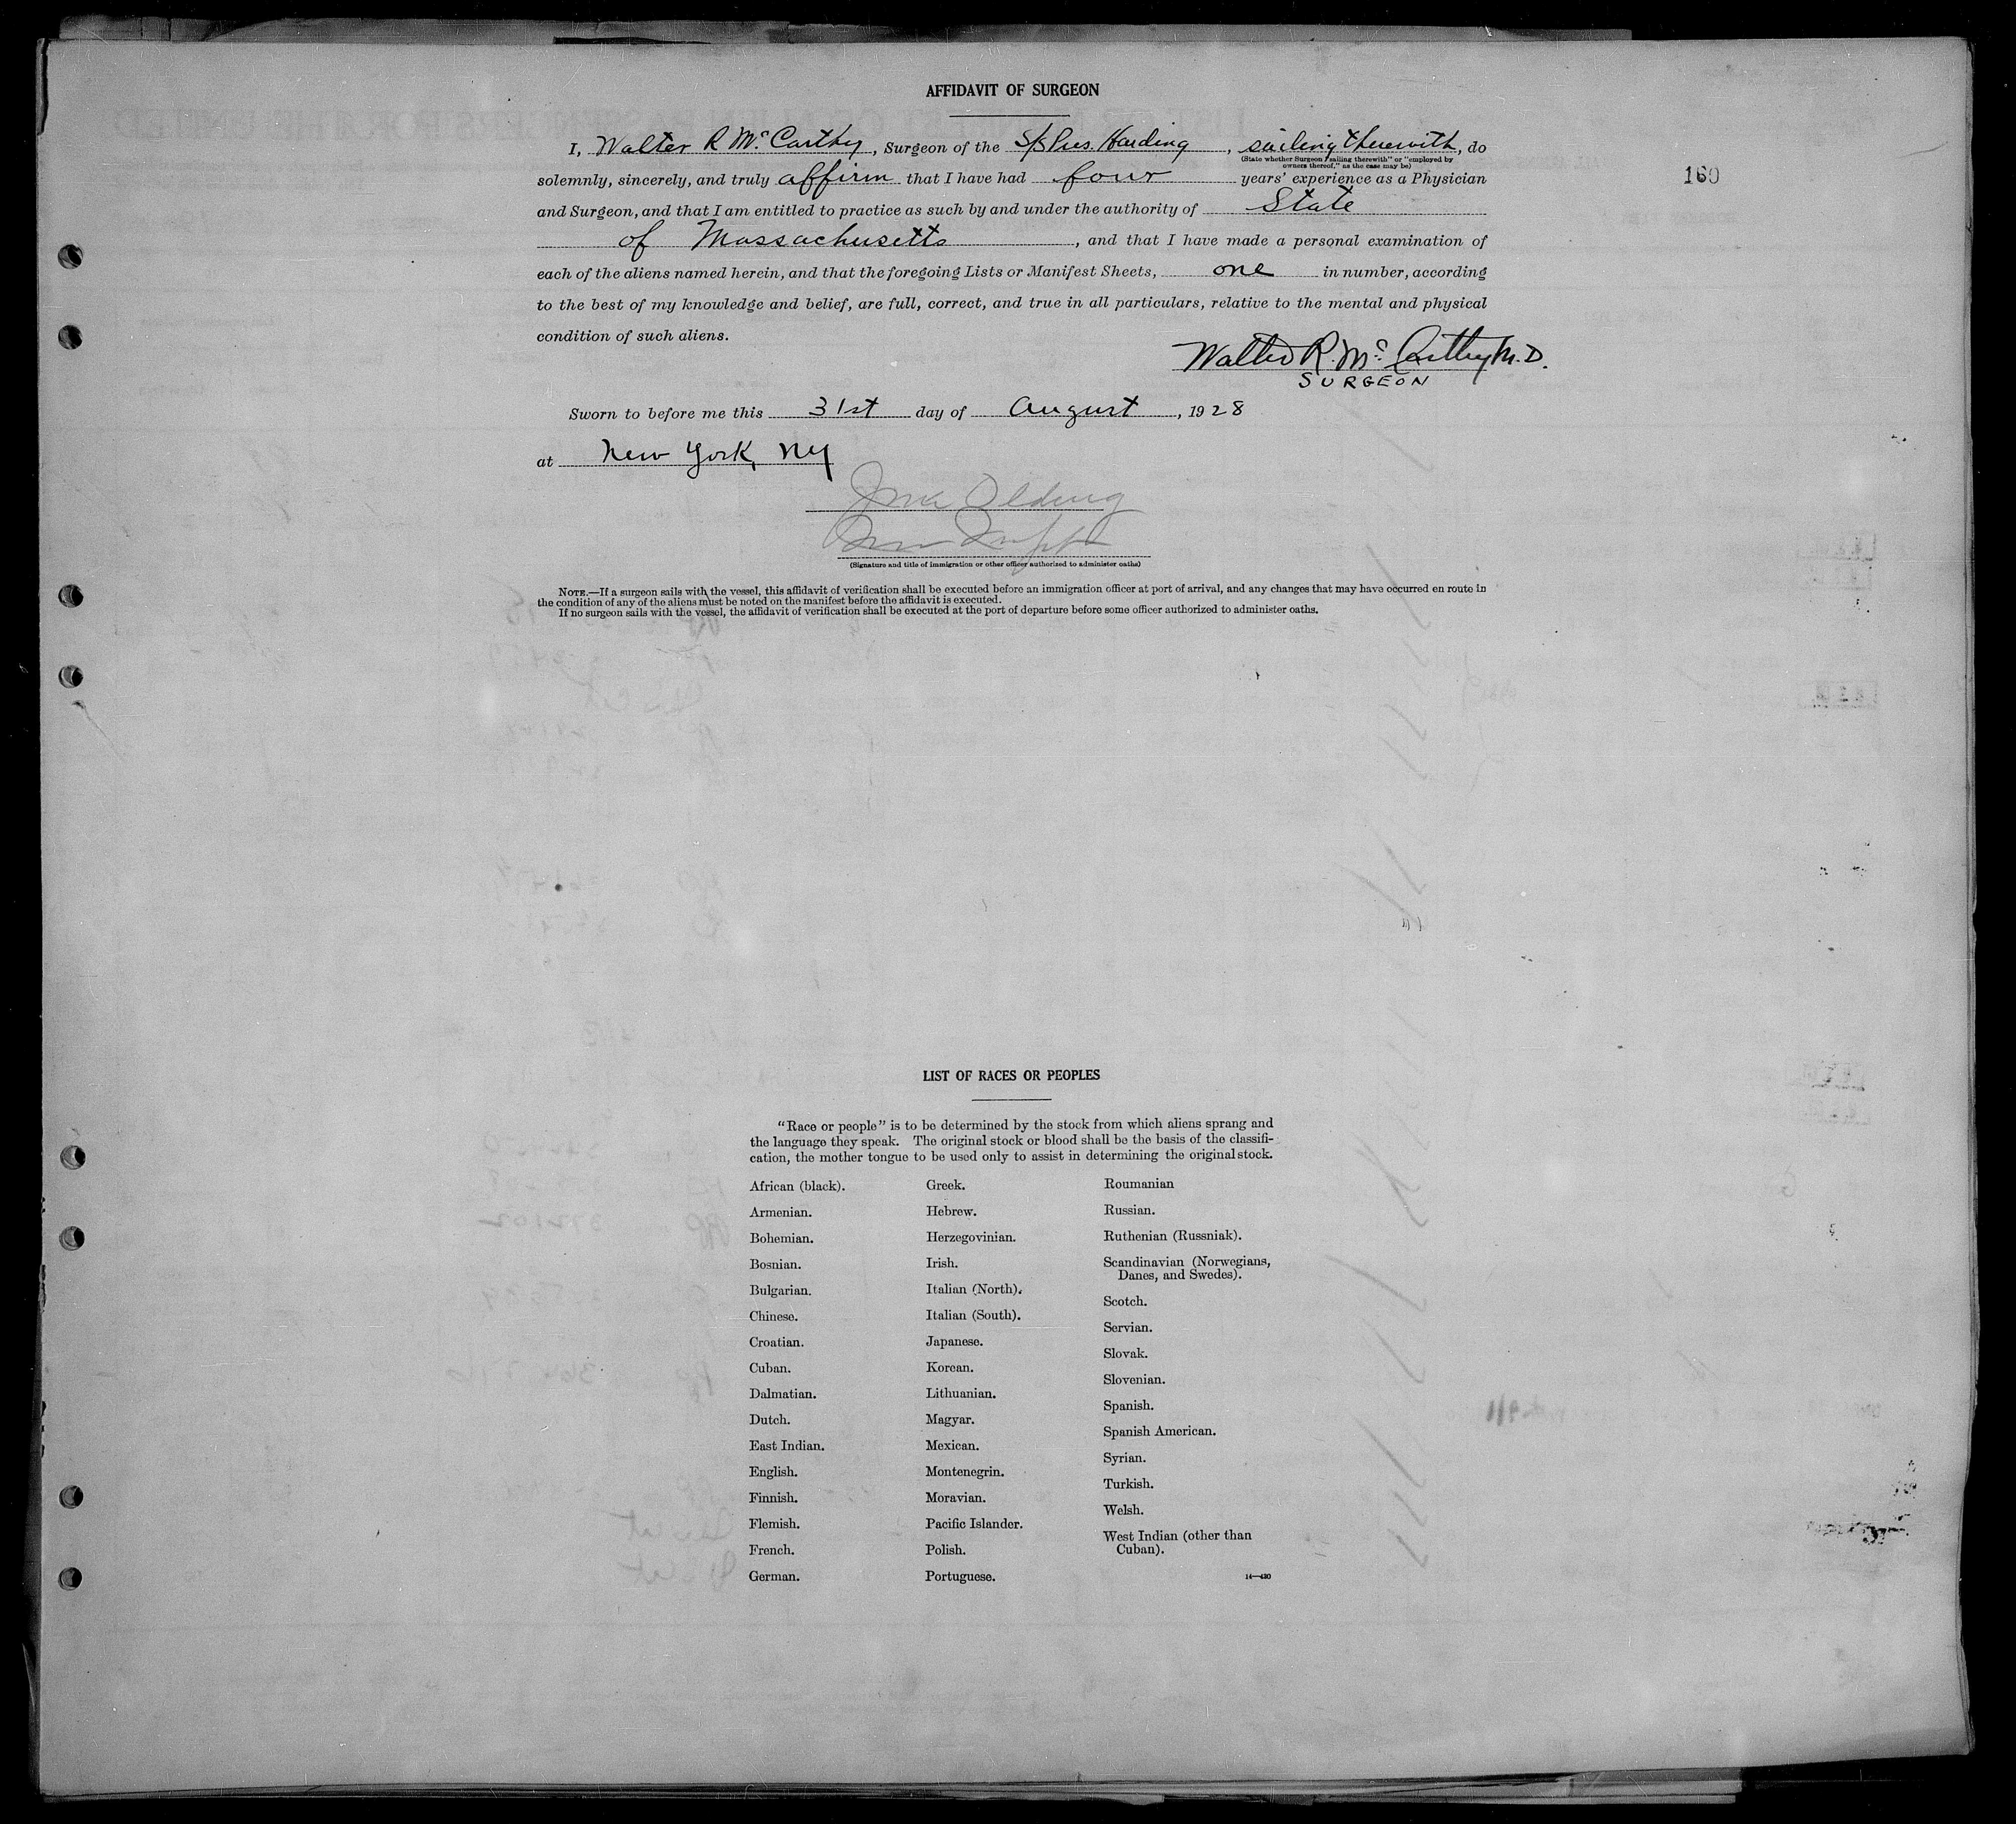 AFFIDAVIT OF SURGEON
I, Walter R McCarthy, Surgeon of the S/S Pres. Harding, sailing therewith, do
(State whether Surgeon "sailing therewith" or "employed by
owners thereof," as the case may be)
160
solemnly, sincerely, and truly affirm that I have had four years' experience as a Physician
and Surgeon, and that I am entitled to practice as such by and under the authority of State
of Massachusetts, and that I have made a personal examination of
each of the aliens named herein, and that the foregoing Lists or Manifest Sheets, one in number, according
to the best of my knowledge and belief, are full, correct, and true in all particulars, relative to the mental and physical
condition of such aliens.
Walter R. McCarthy M.D.
SURGEON
Sworn to before me this 31st day of August, 1928
at New York, NY
(Signature and title of immigration or other officer authorized to administer oaths)
NOTE.—If a surgeon sails with the vessel, this affidavit of verification shall be executed before an immigration officer at port of arrival, and any changes that may have occurred en route in
the condition of any of the aliens must be noted on the manifest before the affidavit is executed.
If no surgeon sails with the vessel, the affidavit of verification shall be executed at the port of departure before some officer authorized to administer oaths.
LIST OF RACES OR PEOPLES
"Race or people" is to be determined by the stock from which aliens sprang and
the language they speak. The original stock or blood shall be the basis of the classifi-
cation, the mother tongue to be used only to assist in determining the original stock.
African (black).
Armenian.
Bohemian.
Bosnian.
Bulgarian.
Chinese.
Croatian.
Cuban.
Dalmatian.
Dutch.
East Indian.
English.
Finnish.
Flemish.
French.
German.
Greek.
Hebrew.
Herzegovinian.
Irish.
Italian (North).
Italian (South).
Japanese.
Korean.
Lithuanian.
Magyar.
Mexican.
Montenegrin.
Moravian.
Pacific Islander.
Polish.
Portuguese.
Roumanian
Russian.
Ruthenian (Russniak).
Scandinavian (Norwegians,
Danes, and Swedes).
Scotch.
Servian.
Slovak.
Slovenian.
Spanish.
Spanish American.
Syrian.
Turkish.
Welsh.
West Indian (other than
Cuban).
14—430